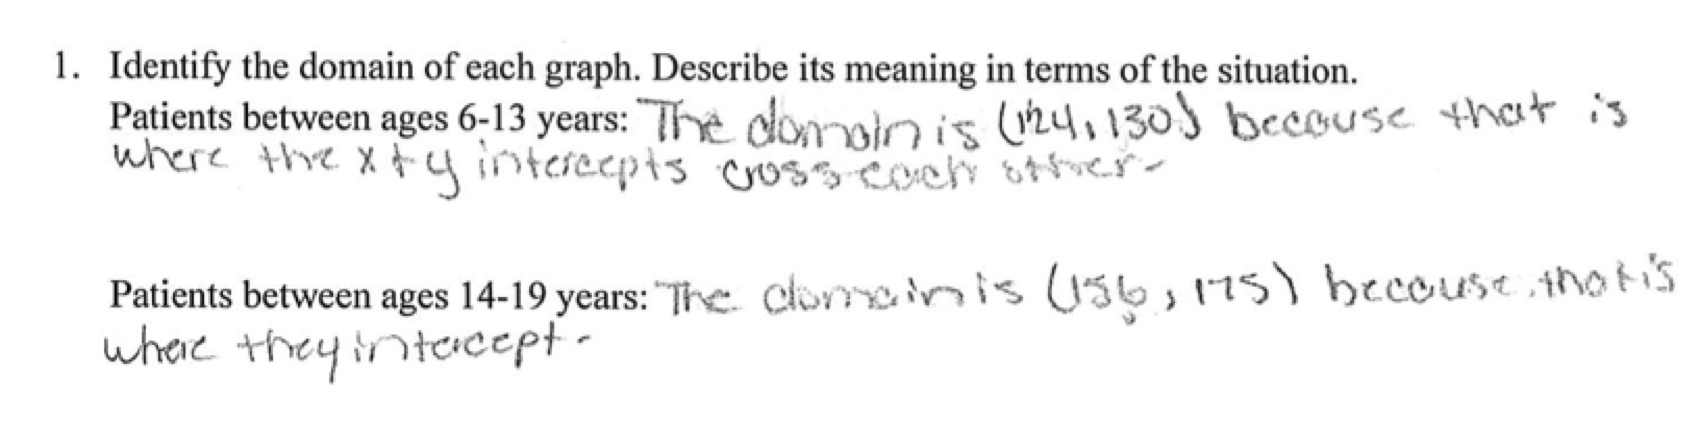 1. Identify the domain of each graph. Describe its meaning in terms of the situation.
Patients between ages 6-13 years: The domain is (124, 130) because that is
where the x + y intercepts cross each other.
Patients between ages 14-19 years: The domain is (156, 175) because that is
where they intercept.